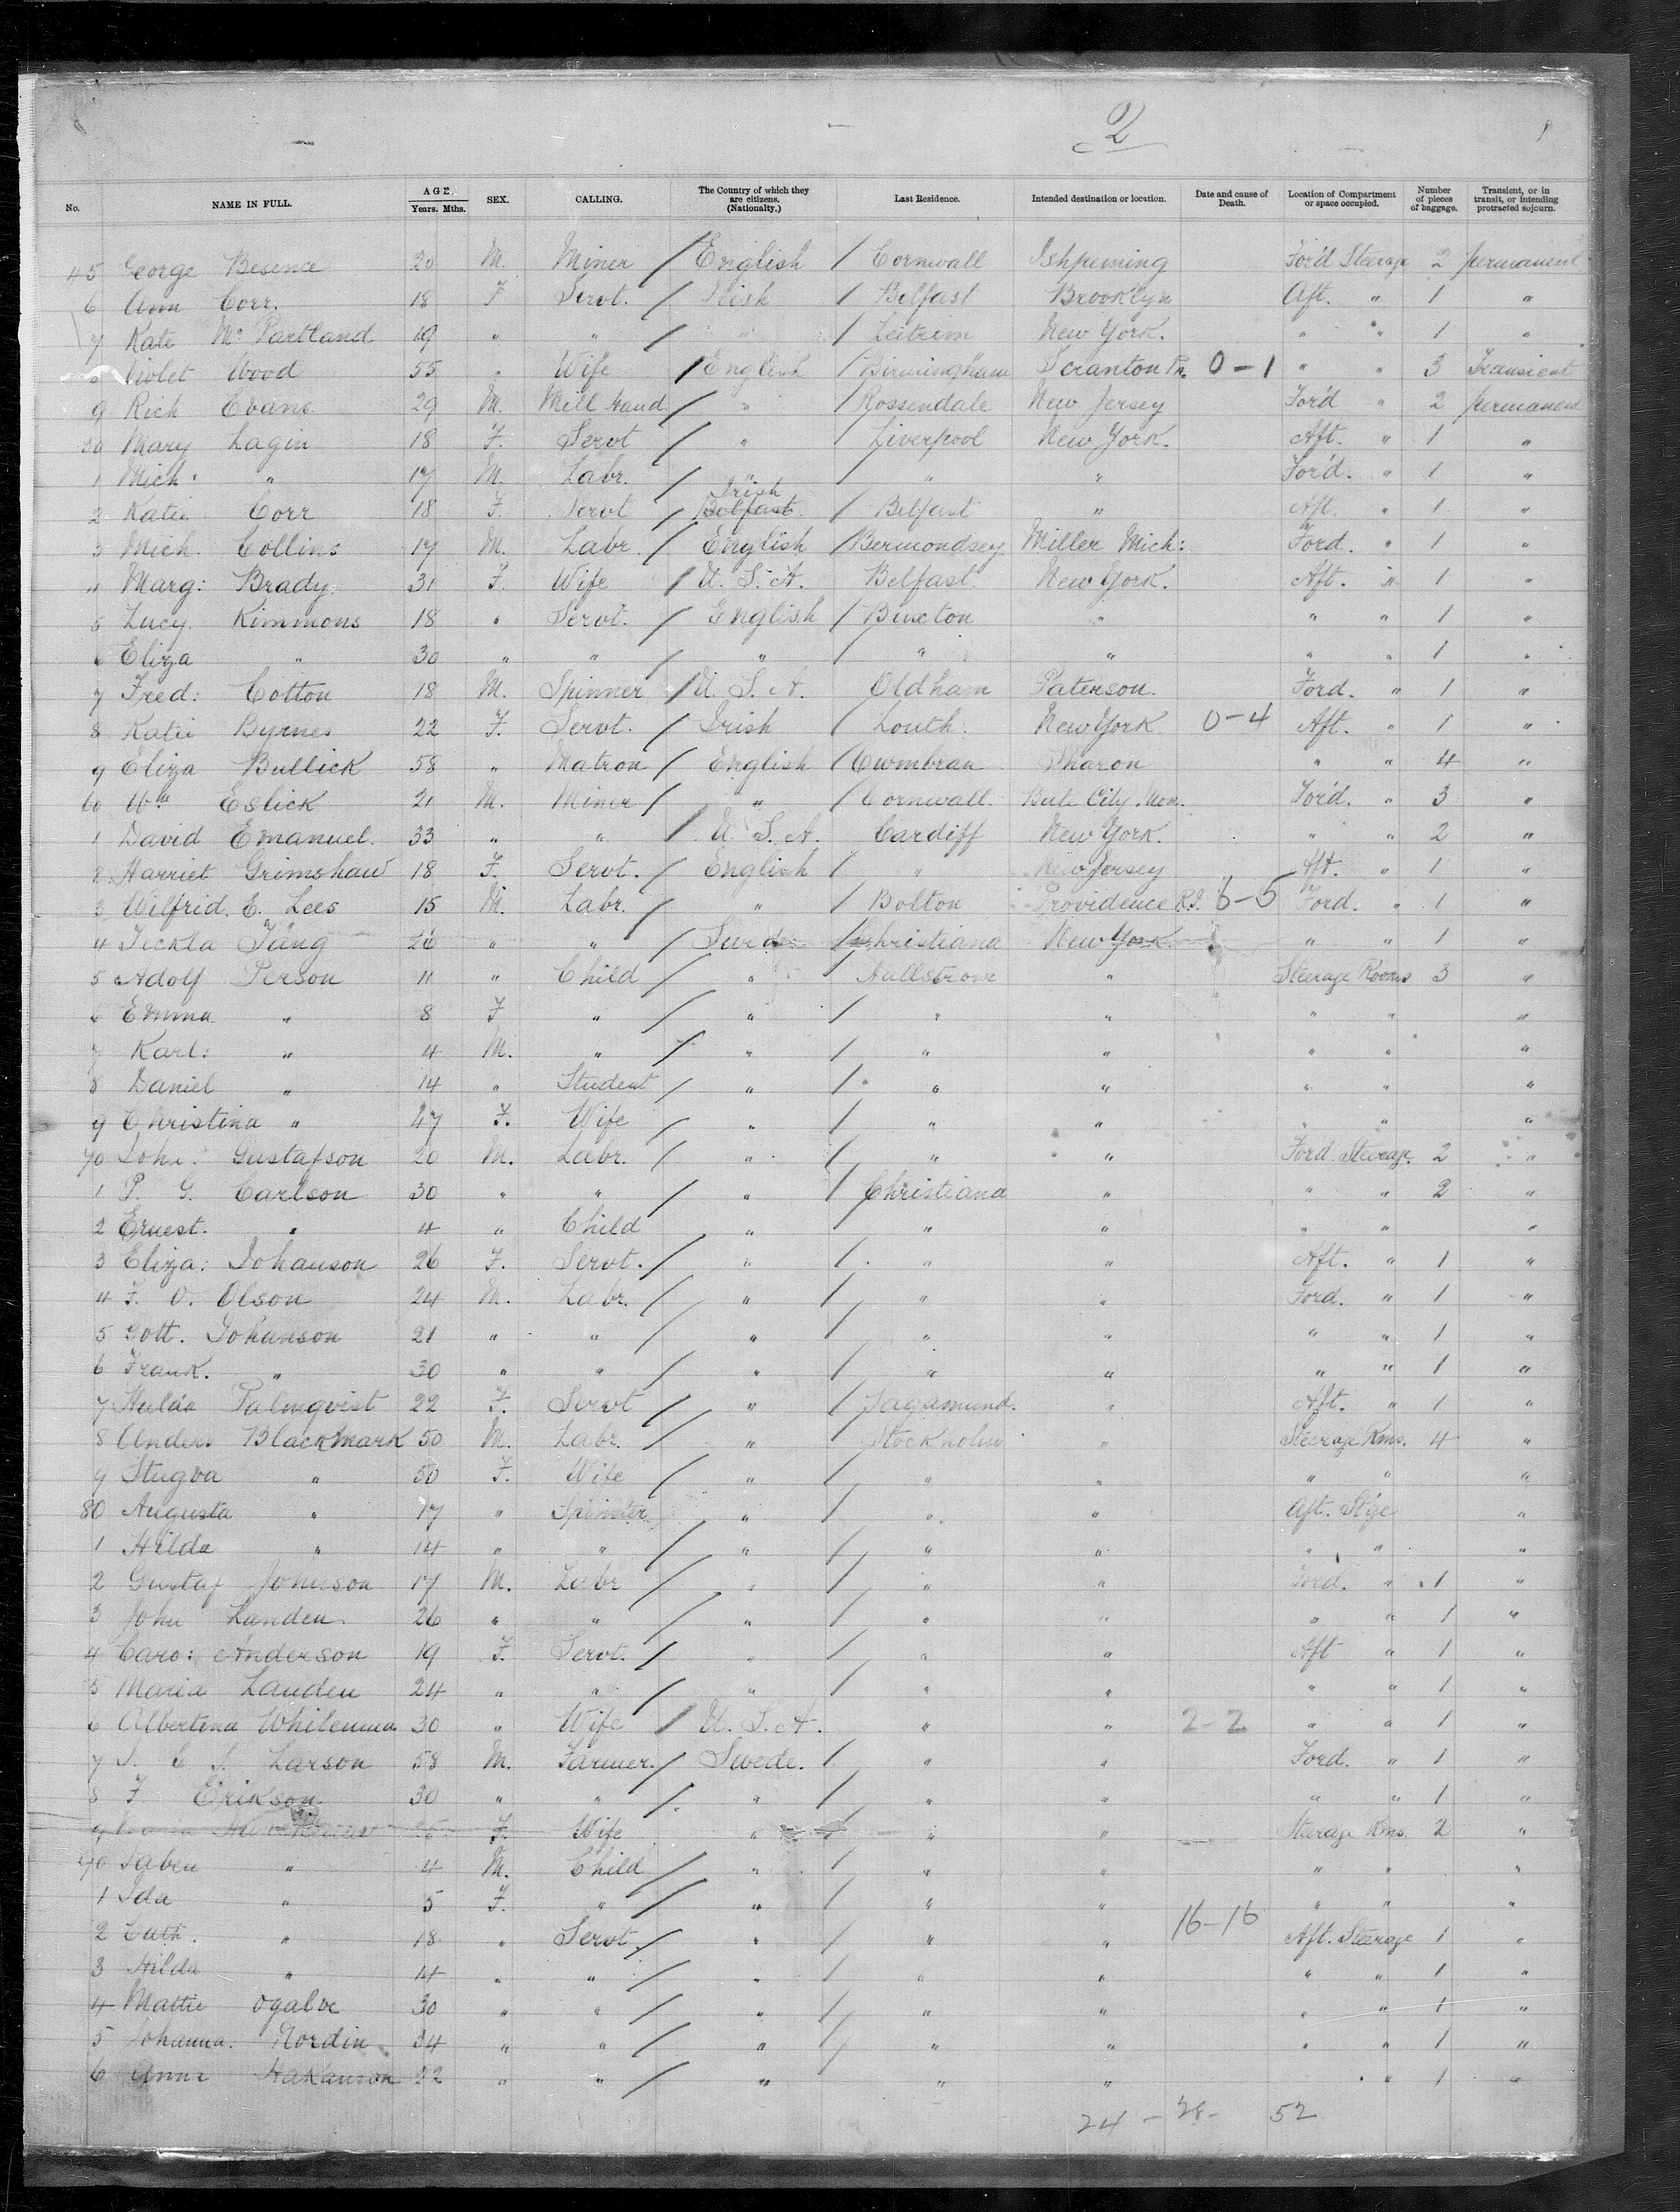 2
No. NAME IN FULL. AGE. Years. Mths. SEX. CALLING. The Country of which they are citizens. (Nationalty.) Last Residence. Intended destination or location. Date and cause of Death. Location of Compartment or space occupied. Number of pieces of baggage. Transient, or in transit, or intending protracted sojourn.
45 George Besence 20 M. Miner / English / Cornwall Ishpeming For'd Steerage 2 permanent
6 Ann Corr. 18 F Servt. / Irish / Belfast Brooklyn Aft. " 1 "
7 Kate Mc Partland 19 " " / " / Leitrim New York. " " 1 "
8 Violet Wood 55 " Wife / English / Birmingham Scranton Pa. 0-1 " " 3 Transient
9 Rich Evans 29 M. Mill Hand / " / Rossendale New Jersey For'd " 2 permanent
50 Mary Lagin 18 F. Servt / " / Liverpool New York. Aft. " 1 "
1 Mich: " 17 M. Labr. / " / " " For'd. " 1 "
2 Katie Corr 18 F. Servt / Belfast Irish / Belfast " Aft. " 1 "
3 Mich. Collins 17 M. Labr. / English / Bermondsey Miller Mich: Ford. " 1 "
" Marg: Brady 31 F. Wife / U. S. A. Belfast. New York. Aft. " 1 "
5 Lucy. Kimmons 18 " Servt. / English / Buxton " " " 1 "
6 Eliza " 30 " " / " / " " " " 1 "
7 Fred: Cotton 18 M. Spinner / U. S. A. Oldham Paterson. Ford. " 1 "
8 Katie Byrnes 22 F. Servt. / Irish / Louth. New York 0-4 Aft. " 1 "
9 Eliza Bullick 58 " Matron / English / Cwmbran Sharon " " 4 "
60 Wm Eslick 21 M. Miner / " / Cornwall. Bute City. Mon. For'd. " 3 "
1 David Emanuel. 33 " " / U. S. A. Cardiff New York. " " 2 "
2 Harriet Grimshaw 18 F. Servt. / English / " New Jersey Aft. " 1 "
3 Wilfrid. E. Lees 15 M. Labr. / " / Bolton Providence R.I. 6-5 Ford. " 1 "
4 Teckla Täng 26 " " / Swede / Christiana New York " " 1 "
5 Adolf Person 11 " Child / " Hallstrom " Steerage Rooms 3 "
6 Emma " 8 F " / " / " " " " "
7 Karl: " 4 M. " / " / " " " " "
8 Daniel " 14 " Student / " / " " " " "
9 Christina " 47 F. Wife / " / " " " " "
70 John: Gustafson 20 M. Labr. / " / " " Ford. Steerage. 2 "
1 P. G. Carlson 30 " " / " / Christiana " " " 2 "
2 Ernest. " 4 " Child " " " " " "
3 Eliza: Johanson 26 F. Servt. / " / " " Aft. " 1 "
4 F. O. Olson 24 M. Labr. / " / " " Ford. " 1 "
5 Gott. Johanson 21 " " / " / " " " " 1 "
6 Frank. " 30 " " / " / " " " " 1 "
7 Hulda Palmqvist 22 F. Servt / " / Jagamund. " Aft. " 1 "
8 Anders Blackmark 50 M. Labr. / " Stockholm " Steerage Rms. 4 "
9 Stugva " 50 F. Wife / " / " " " " "
80 Augusta " 17 " Spinster " / " " Aft. St'ge "
1 Hilda " 14 " " / " / " " " " "
2 Gustaf Johnson 17 M. Labr / " / " " Ford. " 1 "
3 John Landen. 26 " " / " / " " " " 1 "
4 Caro: Anderson 19 F. Servt. / " / " " Aft " 1 "
5 Maria Landen 24 " " / " / " " " " 1 "
6 Albertina Whilemma 30 " Wife / U. S. A. " " 2-2 " " 1 "
7 Larson 58 M. Farmer. / Swede. / " " Ford. " 1 "
8 F. Erikson 30 " " / " / " " " " 1 "
9 F. Wife " " " Steerage Rms. 2 "
90 4 M. Child / " / " " " " "
1 Ida " 5 F. " / " / " " " " "
16-16
2 Cath. " 18 " Servt. / " / " " Aft. Steerage 1 "
3 Hilda " 14 " " / " / " " " " 1 "
4 Mattie Ogalve 30 " " / " / " " " " 1 "
5 Johanna: Nordin 34 " " / " / " " " " 1 "
6 Anna Hakanson 22 " " / " " " " " 1 "
24 - 28 - 52